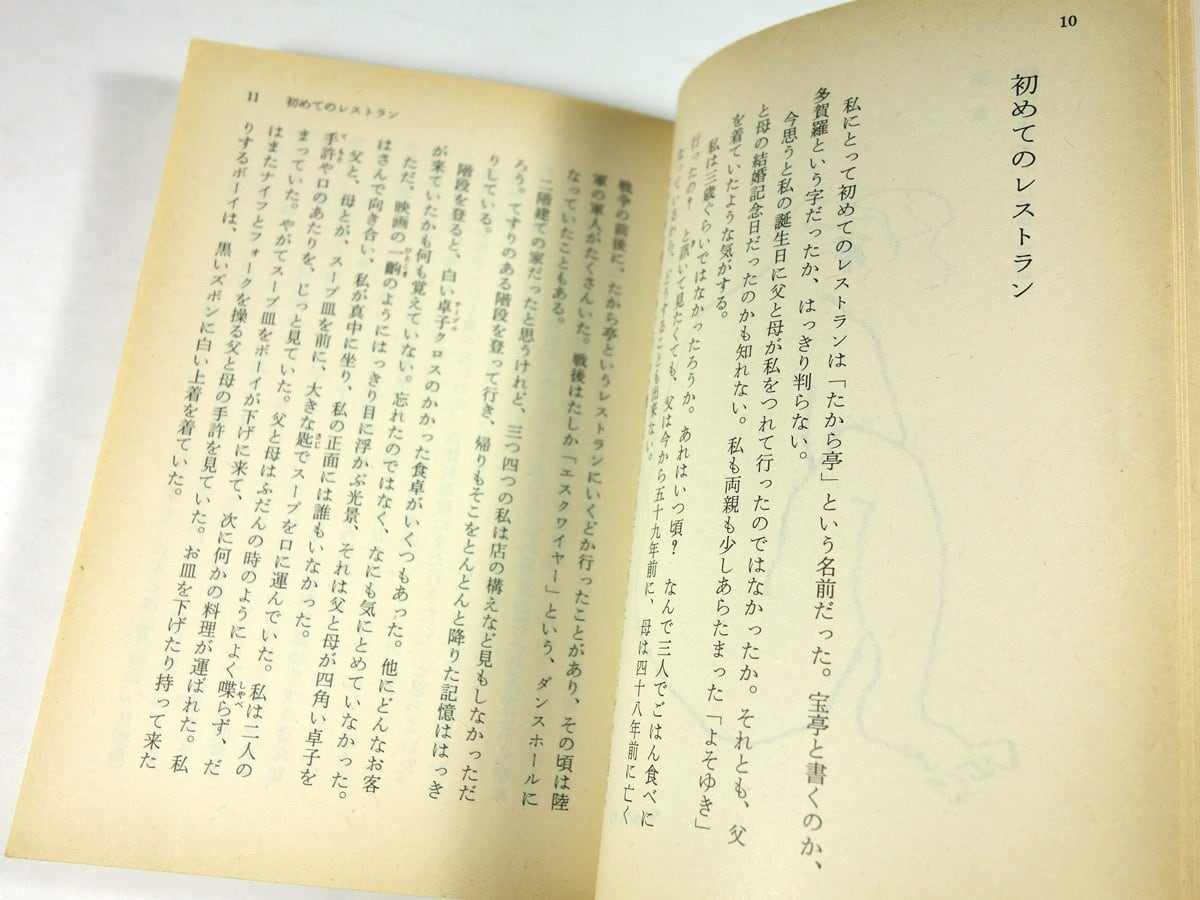 10
初めてのレストラン
私にとって初めてのレストランは「たから亭」という名前だった。宝亭と書くのか、
多賀羅という字だったか、はっきり判らない。
今思うと私の誕生日に父と母が私をつれて行ったのではなかったか。それとも、父
と母の結婚記念日だったのかも知れない。私も両親も少しあらたまった「よそゆき」
を着ていたような気がする。
私は三歳ぐらいではなかったろうか。あれはいつ頃? なんで三人でごはん食べに
行ったの? と訊いて見たくても、父は今から五十九年前に、母は四十八年前に亡く
なっているから、どうすることも出来ない。
11 初めてのレストラン
戦争の前後に、たから亭というレストランにいくどか行ったことがあり、その頃は陸
軍の軍人がたくさんいた。戦後はたしか「エスクワイヤー」という、ダンスホールに
なっていたこともある。
二階建ての家だったと思うけれど、三つ四つの私は店の構えなど見もしなかっただ
ろう。てすりのある階段を登って行き、帰りもそこをとんとんと降りた記憶ははっき
りしている。
階段を登ると、白い卓子クロスのかかった食卓がいくつもあった。他にどんなお客
が来ていたかも何も覚えていない。忘れたのではなく、なにも気にとめていなかった。
ただ、映画の一齣のようにはっきり目に浮かぶ光景、それは父と母が四角い卓子を
はさんで向き合い、私が真中に坐り、私の正面には誰もいなかった。
父と、母とが、スープ皿を前に、大きな匙でスープを口に運んでいた。私は二人の
手許や口のあたりを、じっと見ていた。父と母はふだんの時のようによく喋らず、だ
まっていた。やがてスープ皿をボーイが下げに来て、次に何かの料理が運ばれた。私
はまたナイフとフォークを操る父と母の手許を見ていた。お皿を下げたり持って来た
りするボーイは、黒いズボンに白い上着を着ていた。